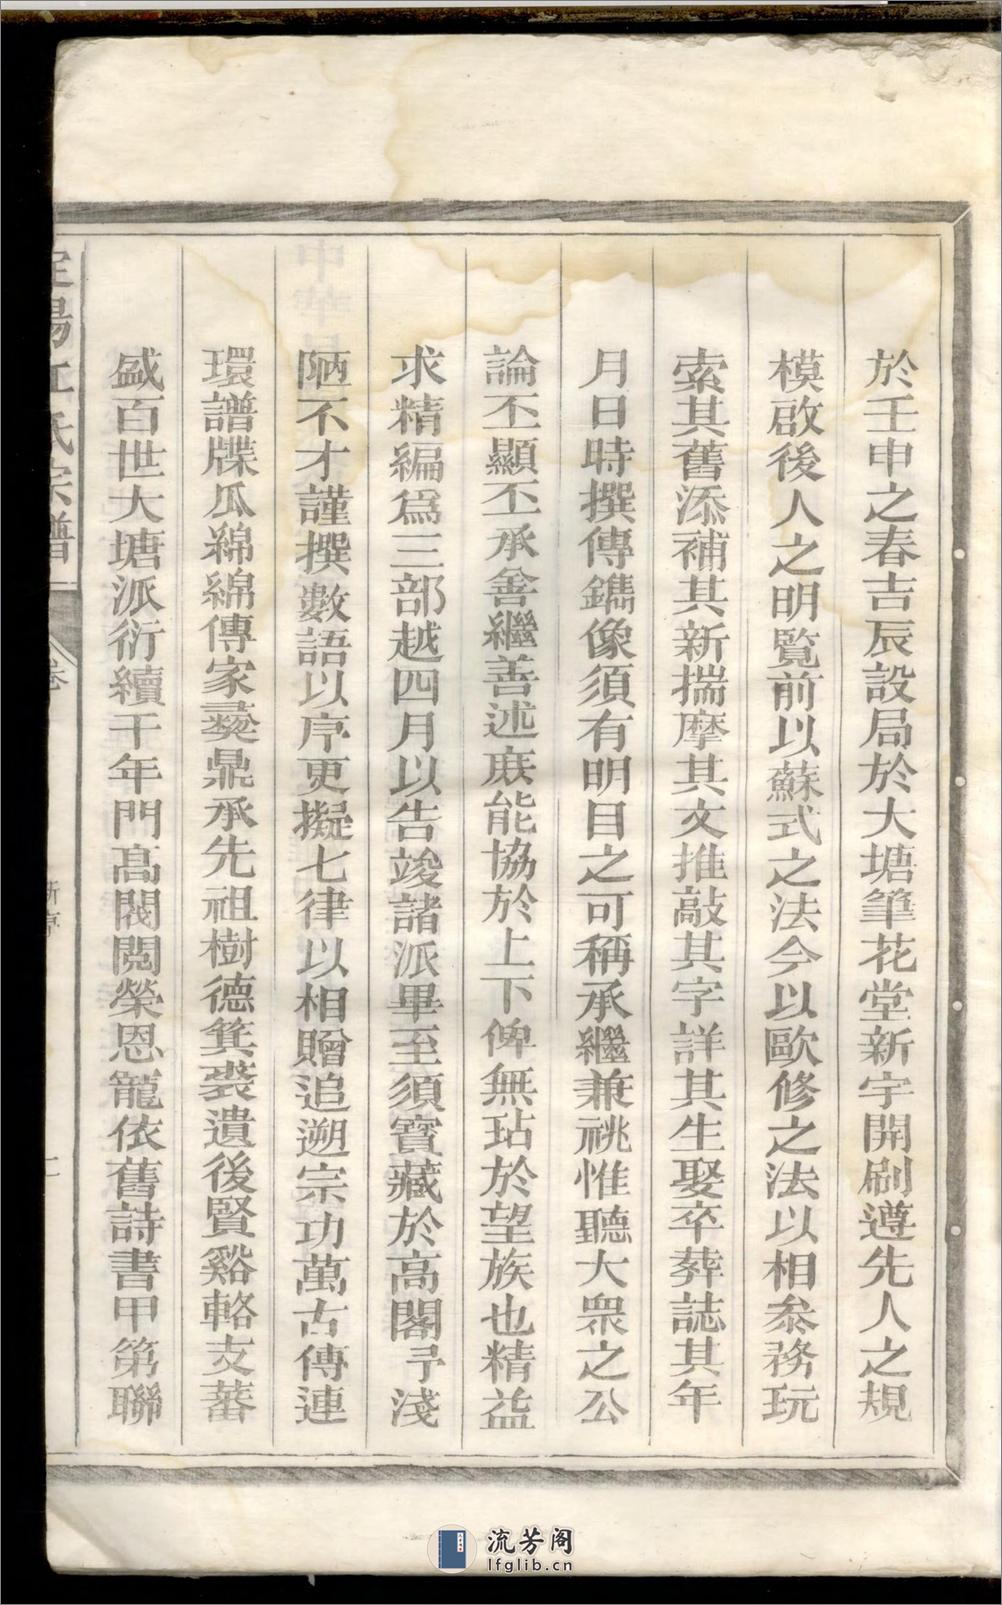 於壬申之春吉辰設局於大塘筆花堂新宇開刷遵先人之規
模啟後人之明覽前以蘇式之法今以歐修之法以相叅務玩
索其舊添補其新揣摩其文推敲其字詳其生娶卒葬誌其年
月日時撰傳鐫像須有明目之可稱承繼兼祧惟聽大衆之公
論丕顯丕承善繼善述庶能協於上下俾無玷於望族也精益
求精編爲三部越四月以告竣諸派畢至須寶藏於高閣予淺
陋不才謹撰數語以序更擬七律以相贈追遡宗功萬古傳連
環譜牒瓜綿綿傳家彜鼎承先祖樹德箕裘遺後賢谿輅支蕃
盛百世大塘派衍續千年門高閥閱榮恩寵依舊詩書甲第聯
江氏宗譜
卷
新序
二
流芳阁
lfglib.cn